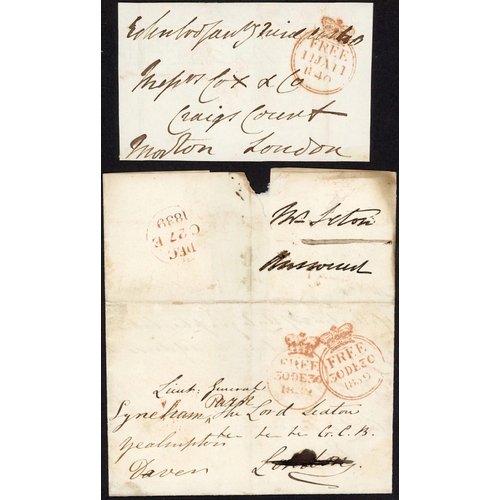 FREE
11JA11
1840
Messrs Cox & Co
Craigs Court
Morton London
DEC
C 27 E
1839
Mr Seton
Answered
FREE
30DE30
1839
FREE
30DE30
1839
Lieut. General
Lyneham The Lord Seaton
Yealmpton &c &c &c G.C.B.
Devon London